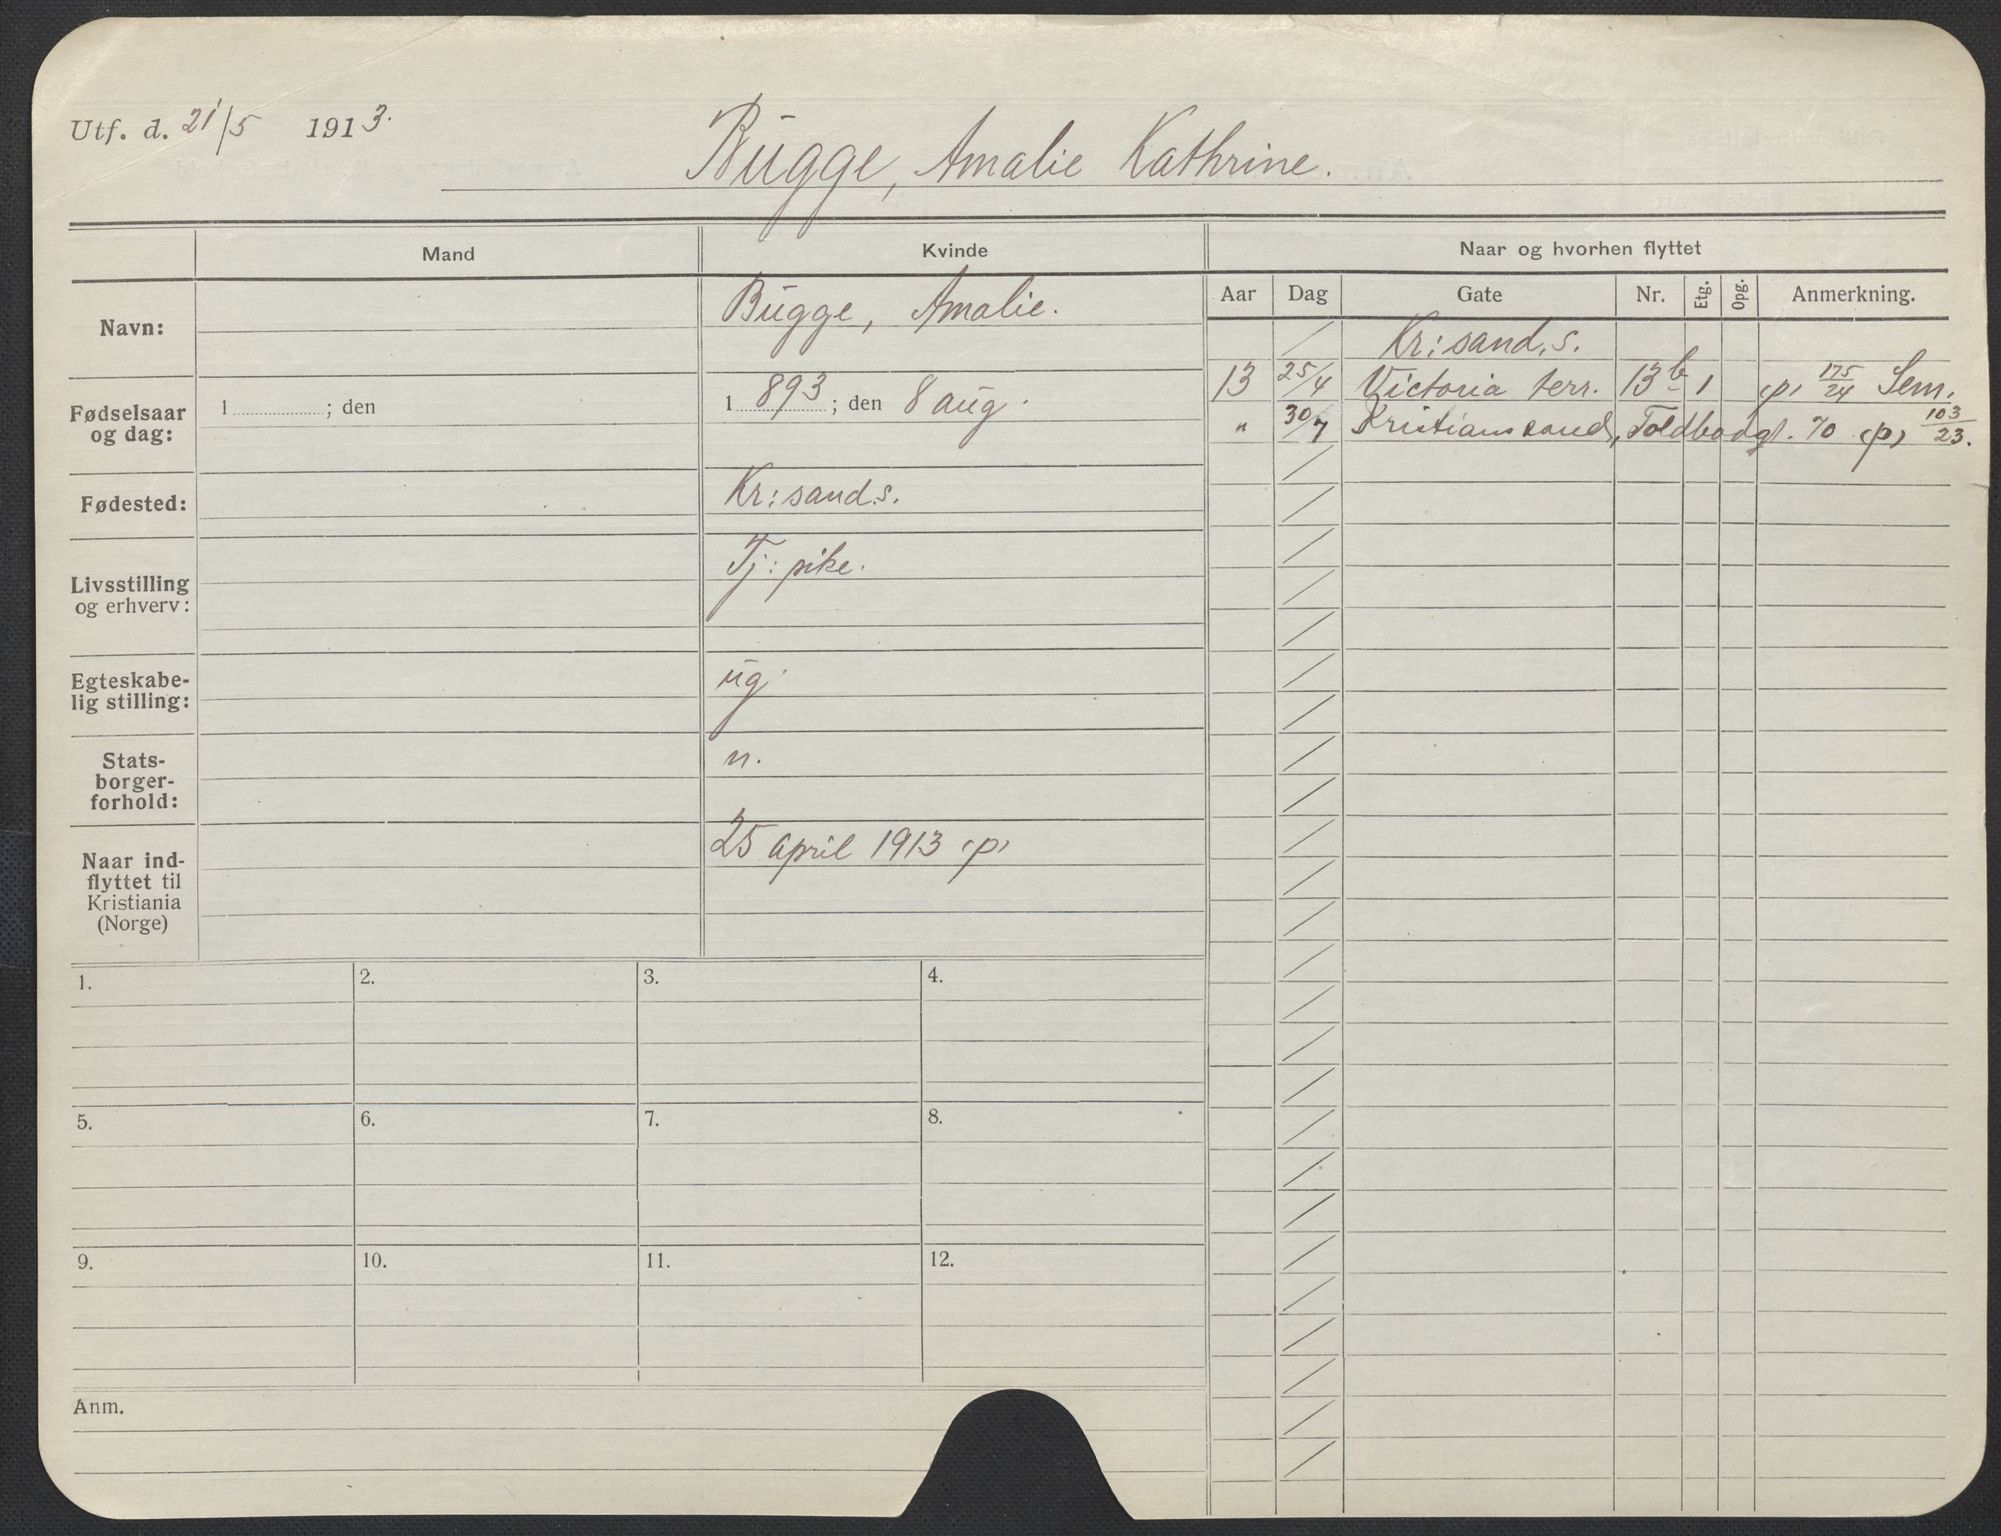 Utf. d. 21/5 1913.
Bugge, Amalie Kathrine.
Mand Kvinde Naar og hvorhen flyttet
Aar Dag Gate Nr. Etg. Opg. Anmerkning.
Navn: Bugge, Amalie.
Kr: sand. s.
13 25/4 Victoria terr. 13 b 1 (p) 175/24 Sem.
" 30/7 Kristianssand, Toldbodgt. 70 (p) 103/23.
Fødselsaar
og dag:
1 ; den
1 893 ; den 8 aug.
Fødested: Kr: sand. s.
Livsstilling
og erhverv:
Tj: pike.
Egteskabe-
lig stilling:
ug.
Stats-
borger-
forhold:
n.
Naar ind-
flyttet til
Kristiania
(Norge)
25 april 1913 (p)
1. 2. 3. 4.
5. 6. 7. 8.
9. 10. 11. 12.
Anm.